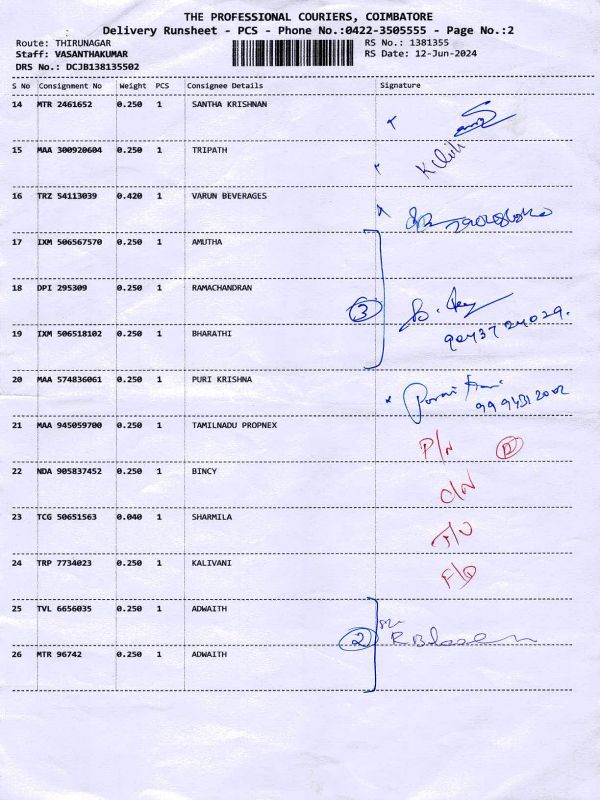 THE PROFESSIONAL COURIERS, COIMBATORE
Delivery Runsheet - PCS - Phone No.:0422-3505555 - Page No.:2
Route: THIRUNAGAR RS No.: 1381355
Staff: VASANTHAKUMAR RS Date: 12-Jun-2024
DRS No.: DCJB138135502
S No Consignment No Weight PCS Consignee Details Signature
14 MTR 2461652 0.250 1 SANTHA KRISHNAN
15 MAA 300920604 0.250 1 TRIPATH
16 TRZ 54113039 0.420 1 VARUN BEVERAGES
17 IXM 506567570 0.250 1 AMUTHA
18 DPI 295309 0.250 1 RAMACHANDRAN
3
19 IXM 506518102 0.250 1 BHARATHI
20 MAA 574836061 0.250 1 PURI KRISHNA
21 MAA 945059700 0.250 1 TAMILNADU PROPNEX P/N
22 NDA 905837452 0.250 1 BINCY C/N
23 TCG 50651563 0.040 1 SHARMILA
24 TRP 7734023 0.250 1 KALIVANI
25 TVL 6656035 0.250 1 ADWAITH
2
26 MTR 96742 0.250 1 ADWAITH